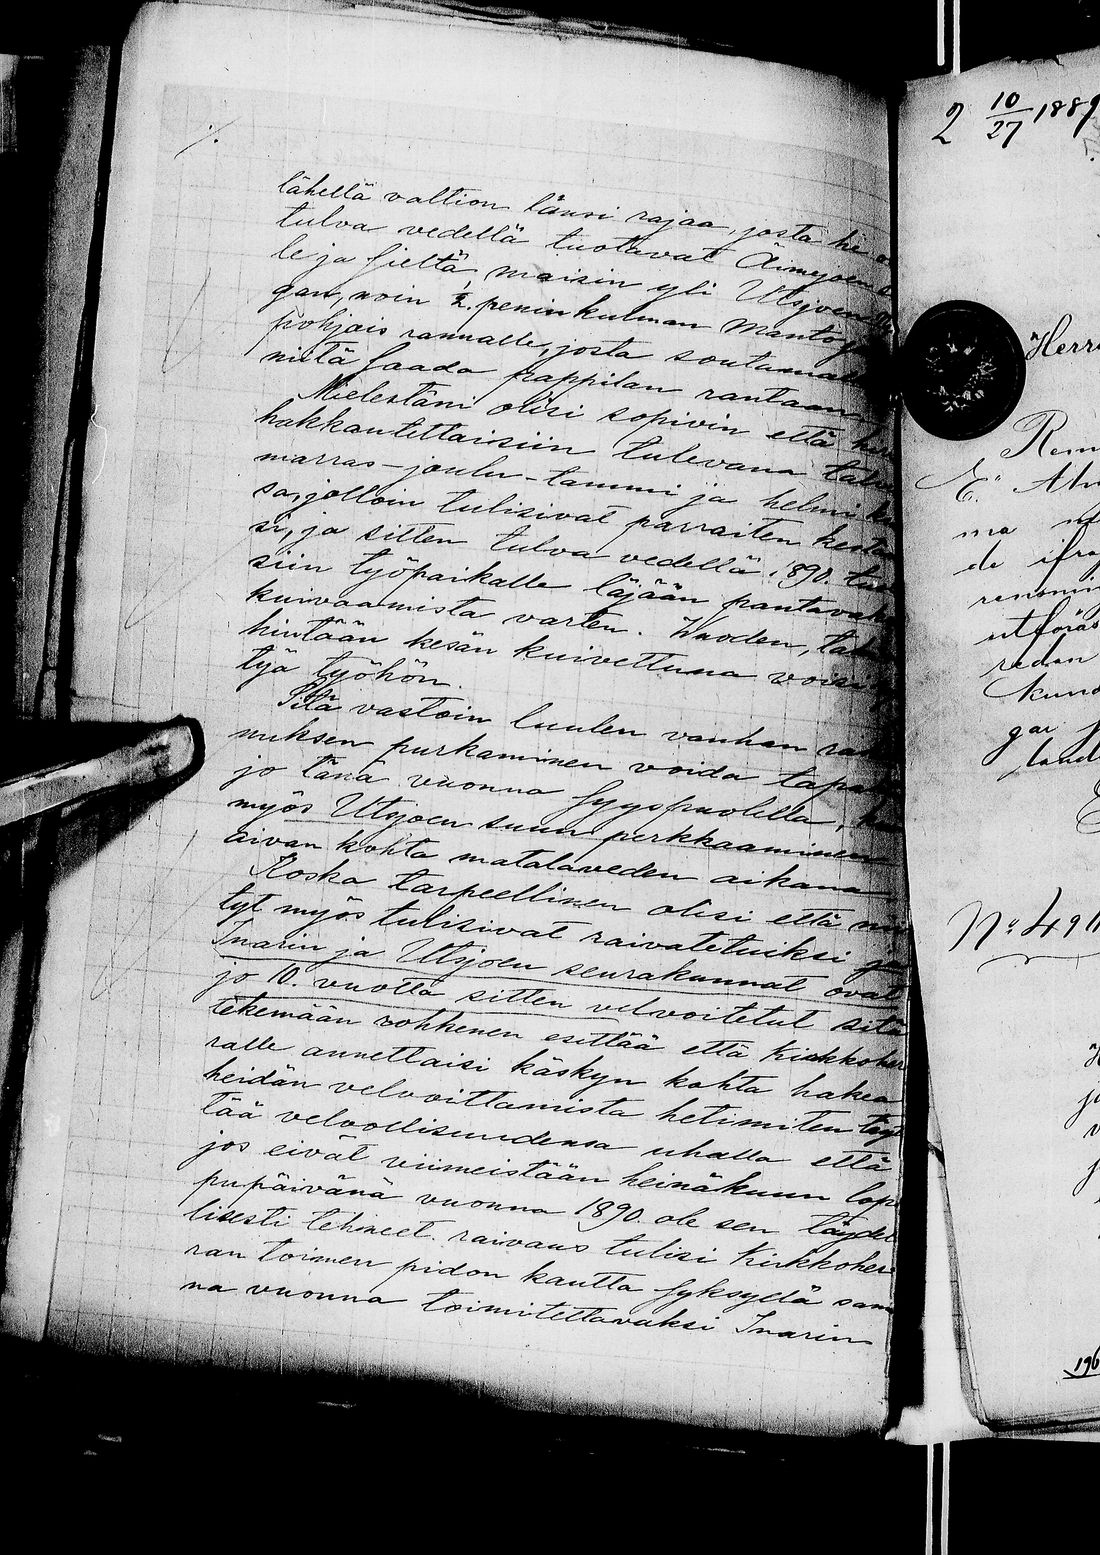 ·/.
lähellä valtion länsi rajaa, josta he
tulva vedellä tuotavat Äimejoen
le ja sieltä, maisin yli Utsjoen
gan, noin ½ peninkulman Manto
pohjais rannalle, josta soutamalla
niitä saada pappilan rantaan.
Mielestäni olisi sopivin että
hakkautettaisiin tulevana
marras-joulu-tammi ja helmi
sa, jolloin tulisivat parraiten
si, ja sitten tulva vedellä 1890.
siin työpaikalle läjään pantavaks
kuivaamista varten. Vuoden,
hintään kesän kuivettuna voisi
tyä työhön.
Sitä vastoin luulen vanhan
nuksen purkaminen voida
jo tänä vuonna syyspuolella,
myös Utsjoen suun perkkaaminen
aivan kohta matalaveden aikana
Koska tarpeellinen olisi että
tyt myös tulisivat raivatetuiksi ja
Inarin ja Utsjoen seurakunnat ovat
jo 10. vuotta sitten velvoitetut sitä
tekemään rohkenen esittää että Kirkkoher
ralle annettaisi käskyn kohta hakea
heidän velvoittamista hetimiten täyt
tää velvollisuudensa uhalla että
jos eivät viimeistään heinäkuun lop
pupäivänä vuonna 1890 ole sen täydel
lisesti tehneet raivaus tulisi Kirkkoher
ran toimen pidon kautta syksyllä sam
na vuonna toimitettavaksi Inarin
2 10/27 1889
Herr
Rem
E. 
ma
de
utföras
redan
kund
gar
land
No 491
196